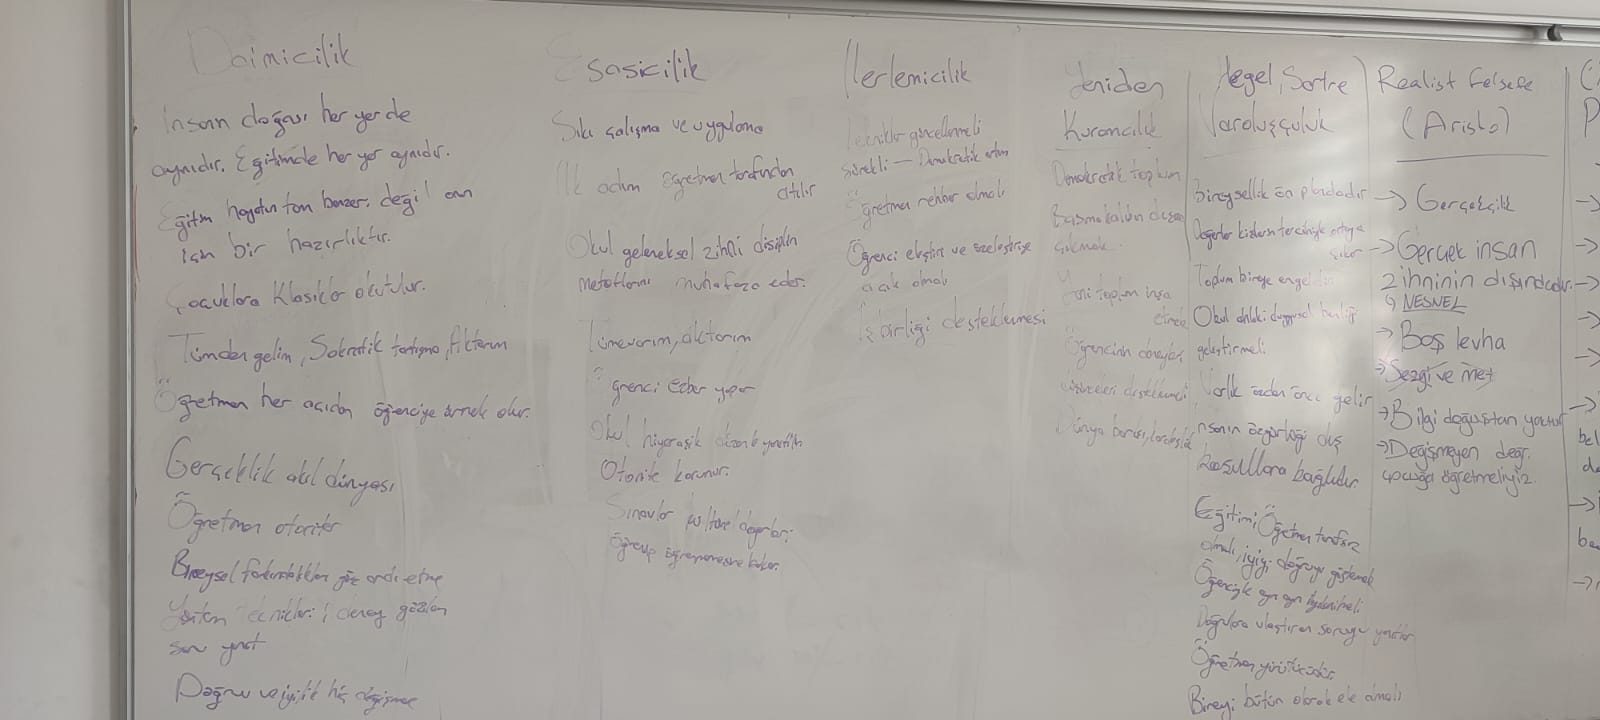 Daimicilik
İnsan doğası her yerde
aynıdır. Eğitimde her yer aynıdır.
Eğitim hayatın tam benzeri değil onn
için bir hazırlıktır.
Çocuklara Klasikler okutulur.
Tümden gelim, Sokratik tartışma, Aktarım
Öğretmen her açıdan öğrenciye örnek olur.
Gerçeklik akıl dünyası
Öğretmen otoriter
Bireysel farkındalıkları göz ardı etme
Yöntem teknikleri; deney gözlem
soru yanıt
Doğru ve iyilik hiç değişmez
Esasicilik
Sıkı çalışma ve uygulama
İlk adım öğretmen tarafından
atılır
Okul geleneksel zihni disiplin
metotlarını muhafaza eder.
Tümevarım, aktarım
Öğrenci Ezber yapar
Okul hiyerarşik düzenle yönetilir
Otorite korunur.
Sınavlar kültürel değerleri
öğrenip öğrenmemesine bakar.
İlerlemicilik
Teknikler güncellenmeli
sürekli — Demokratik ortam
Öğretmen rehber olmalı
Öğrenci eleştiri ve özeleştiriye
açık olmalı
İş birliği desteklemesi
Yeniden
Kuramcılık
Demokratik toplum
Basmakalıbın dışına
çıkmak
Yeni toplum inşa
etmek
Öğrencinin deneyleri,
düşünceleri desteklenmeli
Dünya barışı, kardeşlik
Hegel, Sartre
Varoluşçuluk
Bireysellik ön plandadır
Değerler kişilerin tercihiyle ortaya
çıkar
Toplum bireye engeldir
Okul ahlaki duygusal benliği
geliştirmeli.
Varlık özden önce gelir
İnsanın özgürlüğü dış
koşullara bağlıdır.
Eğitim; Öğretmen tarafsız
olmalı, iyiyi doğruyu göstermek
Öğrenciyle ayrı ayrı ilgilenmeli
Doğrulara ulaştıran soruyu yanıtlar
Öğretmen yürütücüdür
Bireyi bütün olarak ele almalı
Realist Felsefe
(Aristo)
→ Gerçekçilik
→ Gerçek insan
zihninin dışındadır.
↳ NESNEL
→ Boş levha
→ Sezgi ve met
→ Bilgi doğuştan yoktur
→ Değişmeyen değr.
çocuğa öğretmeliyiz.
P
bel
d
ba